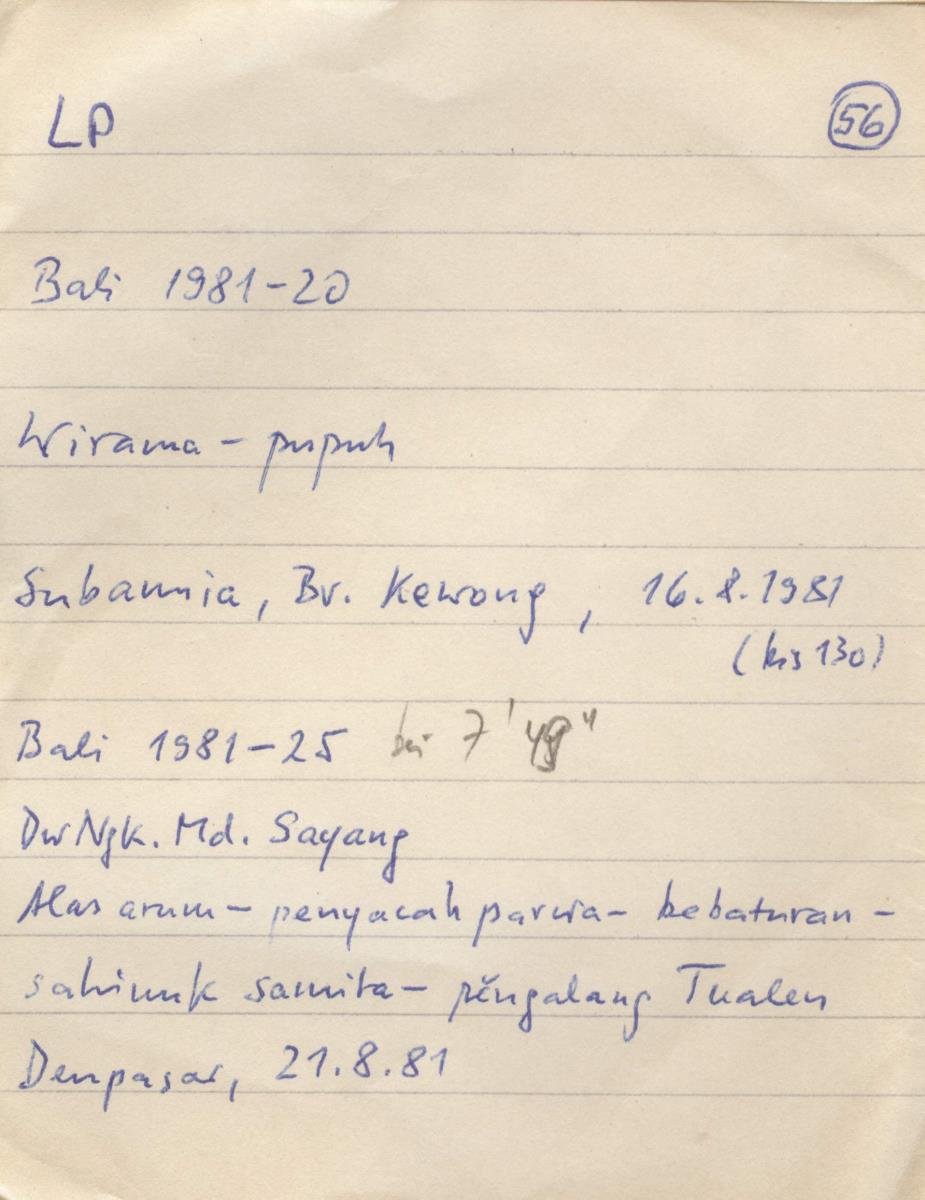 LP 56
Bali 1981-20
Wirama - pupuh
Subamia, Br. Kewong, 16.8.1981
(bis 130)
Bali 1981-25 bei 7' 49"
Dw Ngk. Md. Sayang
Alas arum - penyacah parwa - bebaturan -
samita - pěngalang Tualen
Denpasar, 21.8.81